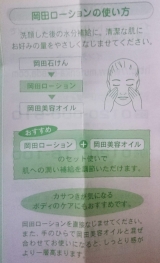 岡田ローションの使い方
洗顔した後の水分補給に、清潔な肌に
お好みの量をやさしくなじませてください。
岡田石けん
岡田ローション
岡田美容オイル
おすすめ
岡田ローション + 岡田美容オイル
のセット使いで
肌への潤い補給を満喫いただけます。
カサつきが気になる
ボディのケアにもおすすめです。
岡田ローションを適量なじませてください。
また、手のひらで岡田美容オイルと混ぜ
合わせてお使いになると、しっとり感が
より一層高まります。